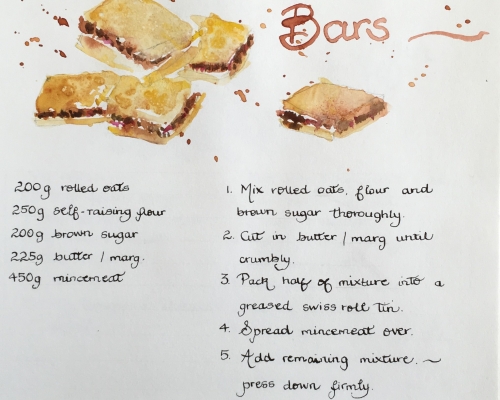 Bars
200g rolled oats
250g self-raising flour
200g brown sugar
225g butter / marg.
450g mincemeat
1. Mix rolled oats, flour and
brown sugar thoroughly.
2. Cut in butter / marg until
crumbly.
3. Pack half of mixture into a
greased swiss roll tin.
4. Spread mincemeat over.
5. Add remaining mixture. ~
press down firmly.